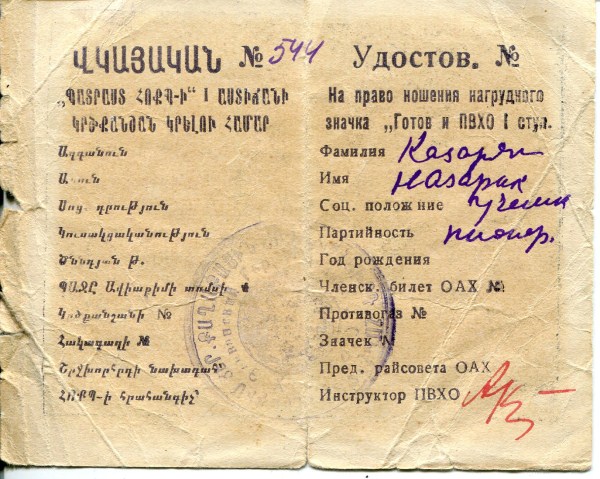 ՎԿԱՅԱԿԱՆ № 544
„ՊԱՏՐԱՍՏ ՀՕՔՊ-Ի“ I ԱՍՏԻՃԱՆԻ
ԿՐԾՔԱՆՇԱՆ ԿՐԵԼՈՒ ՀԱՄԱՐ
Ազգանուն
Անուն
Սոց. դրություն
Կուսակցականություն
Ծննդյան թ.
ՊԱՋԸ Ավիաքիմի տոմսի №
Կրծքանշանի №
Հակագազի №
Շրջխորհրդի նախագահ
ՀՕՔՊ-ի հրահանգիչ
Удостов. №
На право ношения нагрудного
значка „Готов и ПВХО I ступ.
Фамилия Казарян
Имя Назарик
Соц. положение ученик
Партийность пионер.
Год рождения
Членск. билет ОАХ №
Противогаз №
Значек №
Пред. райсовета ОАХ
Инструктор ПВХО